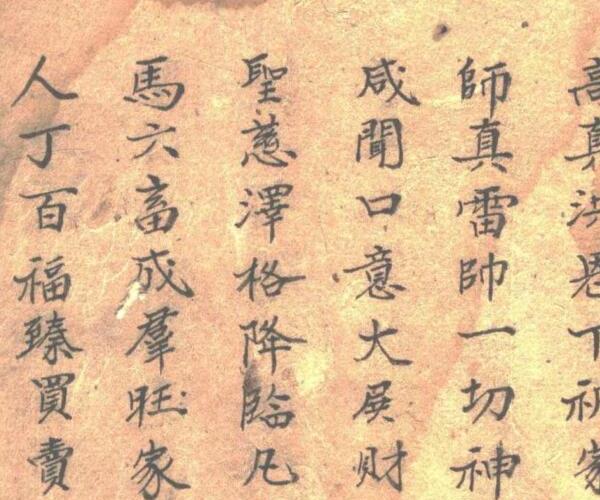 高真洪恩下祈家
師真雷帥一切神
咸聞口意大展財
聖慈澤格降臨凡
馬六畜成羣旺家
人丁百福臻買賣